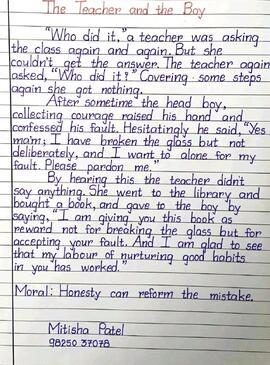 The Teacher and the Boy
"Who did it," a teacher was asking
the class again and again. But she
couldn't get the answer. The teacher again
asked, "Who did it?" Covering some steps
again she got nothing.
After sometime the head boy,
collecting courage raised his hand and
confessed his fault. Hesitatingly he said, "Yes
mam; I have broken the glass but not
deliberately, and I want to alone for my
fault. Please pardon me."
By hearing this the teacher didn't
say anything. She went to the library and
bought a book, and gave to the boy by
saying, "I am giving you this book as
reward not for breaking the glass but for
accepting your fault. And I am glad to see
that my labour of nurturing good habits
in you has worked."
Moral: Honesty can reform the mistake.
Mitisha Patel
98250 37078